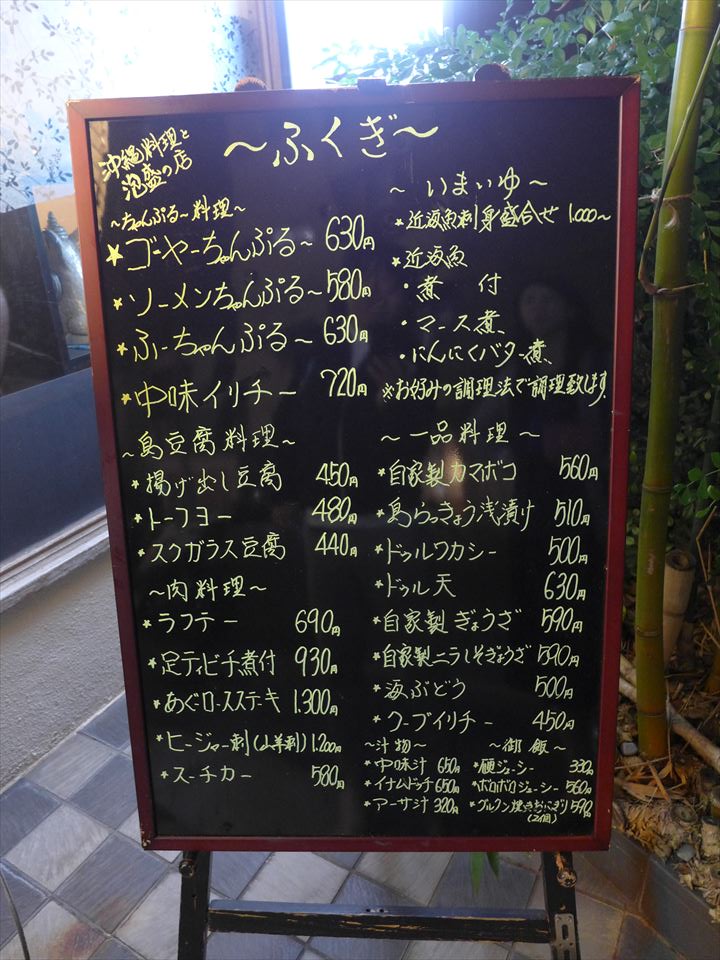 沖縄料理と
泡盛の店
～ふくぎ～
～ちゃんぷるー料理～
★ゴーヤーちゃんぷるー 630円
★ソーメンちゃんぷるー 580円
★ふーちゃんぷるー 630円
★中味イリチー 720円
～島豆腐料理～
★揚げ出し豆腐 450円
★トーフヨー 480円
★スクガラス豆腐 440円
～肉料理～
★ラフテー 690円
★足ティビチ煮付 930円
★あぐーロースステーキ 1.300円
★ヒージャー刺(山羊刺) 1.200円
★スーチカー 580円
～いまいゆ～
★近海魚刺身盛合せ 1.000～
★近海魚
・煮 付
・マース煮
・にんにくバター煮
※お好みの調理法で調理致します
～一品料理～
★自家製カマボコ 560円
★島らっきょう浅漬け 510円
★ドゥルワカシー 500円
★ドゥル天 630円
★自家製ぎょうざ 590円
★自家製ニラしそぎょうざ 590円
★海ぶどう 500円
★クーブイリチー 450円
～汁物～
★中味汁 650円
★イナムドゥチ 650円
★アーサ汁 320円
～御飯～
★硬ジューシー 330円
★ボロボロジューシー 560円
★グルクン焼きおにぎり 590円
(2個)